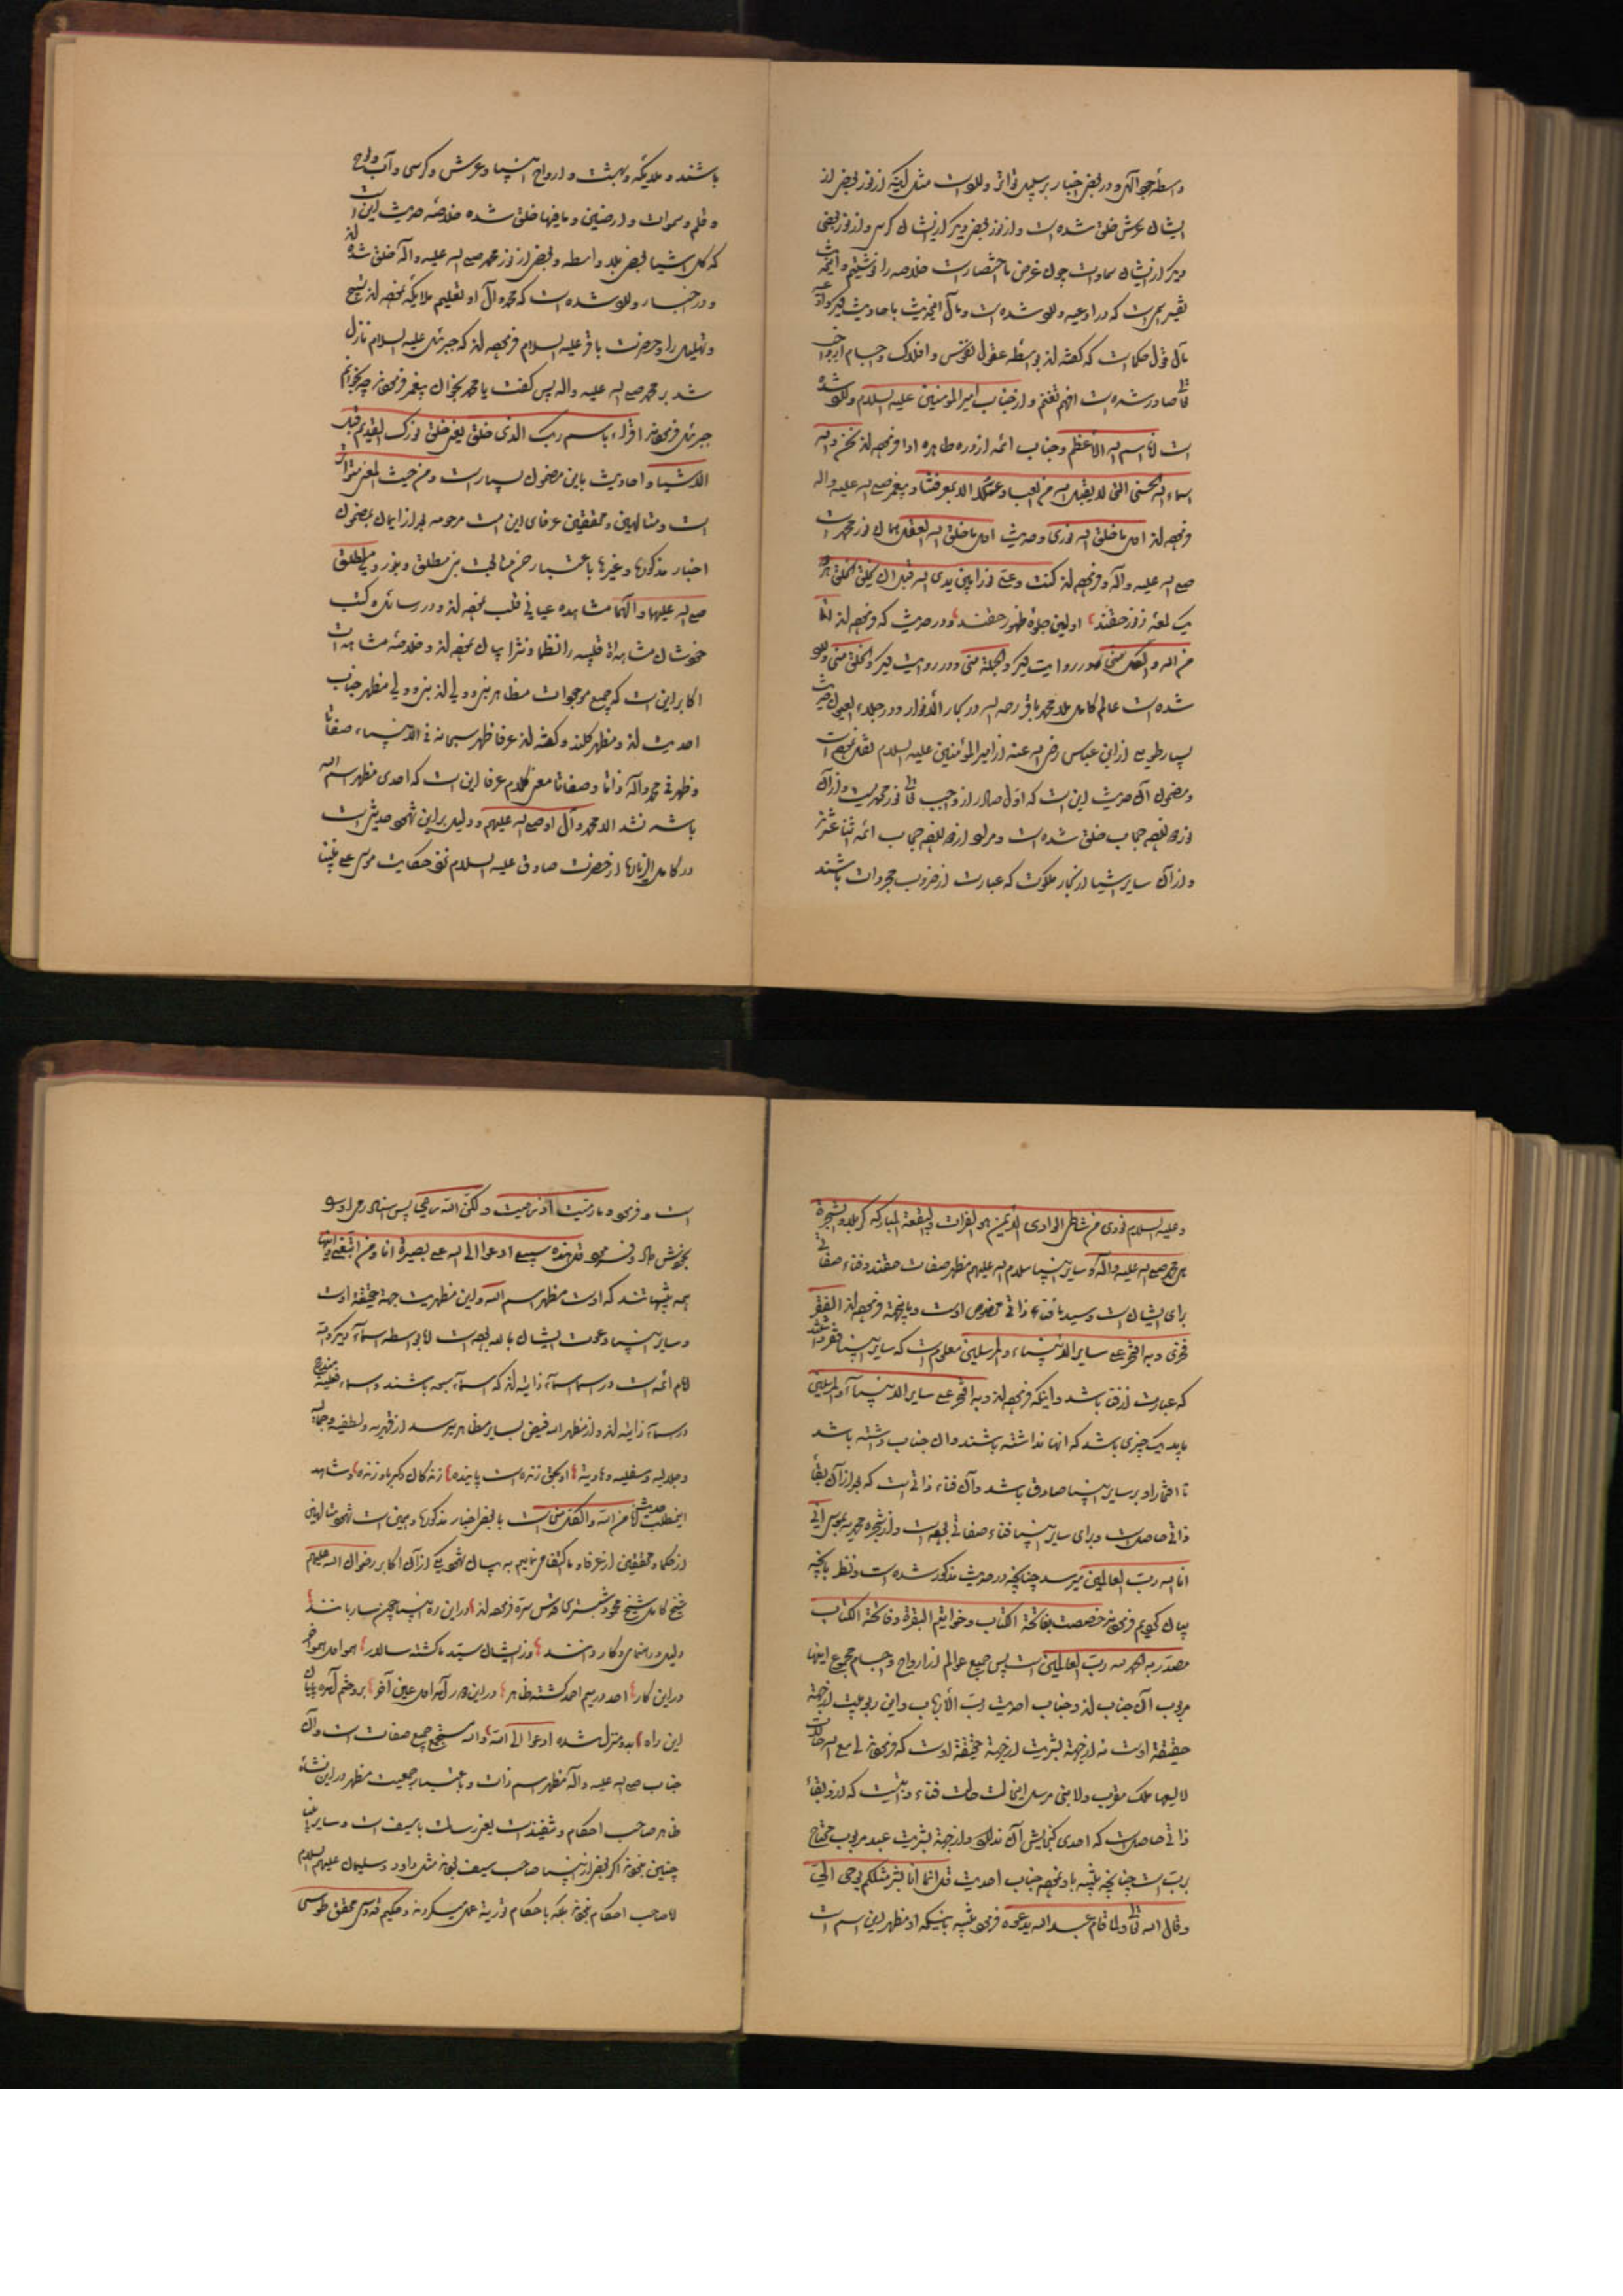 واسطهٔ جود الهی و در بعض اخبار بر سبیل تواتر وارد است مثل اینکه از نور بعض از
ایشان عرش خلق شده است و از نور بعض دیگر از ایشان کرسی و از نور بعضی
دیگر از ایشان سماوات چون غرض ما اختصار است خلاصه را نوشتیم و
که در ادعیه وارد شده است و مآل این حدیث با حدیث دیگر
مآل قول حکما است که گفته‌اند بواسطه عقول نفوس و افلاک و اجسام از واجب
تعالی صادر شده است افهم تغنم و از جناب امیر المؤمنین علیه السلام وارد شده
است انا اسم الله الاعظم و جناب ائمه از ذریه طاهره او فرموده‌اند نحن والله
اسماء الله الحسنی التی لا یقبل الله من العباد عملا الا بمعرفتنا و پیغمبر صلی الله علیه واله
فرموده‌اند اول ما خلق الله نوری و حدیث اول ما خلق الله العقل همان نور محمد است
صلی الله علیه وآله و فرموده‌اند کنت وعلی نورا بین یدی الله قبل ان یخلق الخلق
یک لمعه ز نور حقند اولین جلوهٔ ظهور حقند و در حدیث که فرموده‌اند انا
من الله والکل منی و در روایت دیگر والجملة منی و در روایت دیگر والخلق منی وارد
شده است عالم کامل ملا محمد باقر رحمه الله در بحار الانوار و در جلاء العیون حدیث
بسیار طویلی از ابن عباس رضی الله عنه از امیر المؤمنین علیه السلام نقل نموده است
و مضمون آن حدیث این است که اول صادر از واجب تعالی نور محمدیست و از آن
نور دوازده حجاب خلق شده است و مراد از دوازده حجاب ائمه اثنا عشرند
و از آن سایر اشیا از بحار ملکوت که عبارت از ضروب مجردات باشند
باشند و ملایکه و بهشت و ارواح انبیا و عرش و کرسی و آب و لوح
و قلم و سموات و ارضین و ما فیها خلق شده خلاصه حدیث این است
که کل اشیا بعض بلا واسطه و بعض از نور محمد صلی الله علیه وآله خلق شده‌اند
و در اخبار وارد شده است که محمد وآل او تعلیم ملایکه نموده‌اند تسبیح
و تهلیل را و حضرت باقر علیه السلام فرموده‌اند که جبرئیل علیه السلام نازل
شد بر محمد صلی الله علیه واله پس گفت یا محمد بخوان پیغمبر فرمودند چه بخوانم
جبرئیل فرمودند اقراء باسم ربک الذی خلق یعنی خلق نورک القدیم قبل
الاشیا و احادیث باین مضمون بسیار است و من حیث المعنی متواتر
است و متالهین و محققین عرفای این امت مرحومه بعد از ایمان بمضمون
اخبار مذکورها و غیرها باعتبار ختم نبی مطلق و بنور ولی مطلق
صلی الله علیهما وآلهما مشاهده عیانی قلب نموده‌اند و در رسائل و کتب
خودشان مشاهدهٔ قلبیه را نظما و نثرا بیان نموده‌اند و خلاصهٔ مشاهدات
اکابر این است که جمیع موجودات مظاهر نبی و ولی‌اند و نبی و ولی مظهر جناب
احدیت‌اند و مظهر کلند و گفته‌اند عرفا ظهر سبحانه فی الانبیاء صفاتا
وظهر فی محمد وآله ذاتا وصفاتا معنی کلام عرفا این است که احدی مظهر اسم الله
باشد نشد الا محمد وآل او صلی الله علیهم و دلیل بر این شهود حدیثی است
در کامل الزیارة از حضرت صادق علیه السلام نقل حکایت موسی علی نبینا
وعلیه السلام نودی من شاطئ الوادی الایمن هو الفرات والبقعة المبارکة کربلا والشجرة
هی محمد صلی الله علیه وآله و سایر انبیا سلام الله علیهم مظهر صفات حقند و فناء صفاتی
برای ایشان است و سید ما فناء ذاتی مخصوص اوست و باینجهة فرموده‌اند الفقر
فخری وبه افتخر علی سایر الانبیاء والمرسلین معلوم است که سایر انبیا فقر داشتند
که عبارت از فنا باشد و اینکه فرموده‌اند وبه افتخر علی سایر الانبیاء والمرسلین
باید یک چیزی باشد که آنها نداشته باشند و آن جناب داشته باشد
تا افتخار او بر سایر انبیا صادق باشد و آن فناء ذاتی است که بعد از آن بقاء
ذاتی حاصل است و برای سایر انبیا فناء صفاتی بوده است و از شجره محمدیه بموسی انی
انا الله رب العالمین میرسد چنانچه در حدیث مذکور شده است و نظر بآنچه
بیان کردیم فرمودند خصصت بفاتحة الکتاب وخواتیم البقرة وفاتحة الکتاب
مصدر به الحمد لله رب العالمین است پس جمیع عوالم از ارواح و اجسام مجموع اینها
مربوب آن جناب‌اند و جناب احدیت رب الارباب و این ربوبیت از جهة
حقیقة اوست نه از جهة بشریت از جهة حقیقة اوست که فرمودند لی مع الله حالات
لا یسعها ملک مقرب ولا نبی مرسل این حالت حالت فناء ذاتیست که از او بقاء
ذاتی حاصل است که احدی گنجایش آن ندارد و از جهة بشریت عبد مربوب محتاج
برب است چنانچه تنبیه باو نموده جناب احدیت قل انما انا بشر مثلکم یوحی الی
وقال الله تعالی ولما قام عبد الله یدعوه فرمود تنبیه باینکه او مظهر این اسم است
است و فرمود وما رمیت اذ رمیت ولکن الله رمی پس اسناد رمی او را
بخودش داد و فرمود قل هذه سبیلی ادعوا الی الله علی بصیرة انا ومن اتبعنی
همه تنبیهاتند که اوست مظهر اسم الله و این مظهریت جهة حقیقة اوست
و سایر انبیا دعوت ایشان بالله بوده است اما بواسطه اسماء دیگر و الله
امام ائمه است در اسما اسماء ذاتیه‌اند که اسماء سبعه باشند و اسماء فعلیه مندرج
در اسماء ذاتیه‌اند و از مظهر الله فیض بسایر مظاهر میرسد از قهریه و لطفیه و جمالیه
و جلالیه و سفلیه و هادیه او بحق زنده است پاینده زندگان دگر باو زنده و شاهد
اینمطلب حدیث انا من الله والکل منی است با بعض اخبار مذکورها و همین است شهود متالهین
از حکما و محققین از عرفا و ما اکتفا مینماییم به بیان شهود یکی از آن اکابر رضوان الله علیهم
شیخ کامل شیخ محمود شبستری قدس سره فرموده‌اند در این ره انبیا چون ساربانند
دلیل و رهنمای کاروانند وز ایشان سید ما گشته سالار هم او اول هم آخر
در این کار احد در میم احمد گشته ظاهر در این دور آمد اول عین آخر برو ختم آمده پایان
این راه بدو منزل شده ادعوا الی الله والله مستجمع جمیع صفات است و آن
جناب صلی الله علیه وآله مظهر اسم ذات و باعتبار جمعیت مظهر در این نشأه
ظاهر صاحب احکام و تنفیذ است یعنی رسالت با سیف است و سایر انبیا
چنین نبودند اگر بعض از انبیا صاحب سیف بودند مثل داود و سلیمان علیهم السلام
اما صاحب احکام نبودند بلکه باحکام توریة عمل میکردند و حکیم قدوسی محقق طوسی